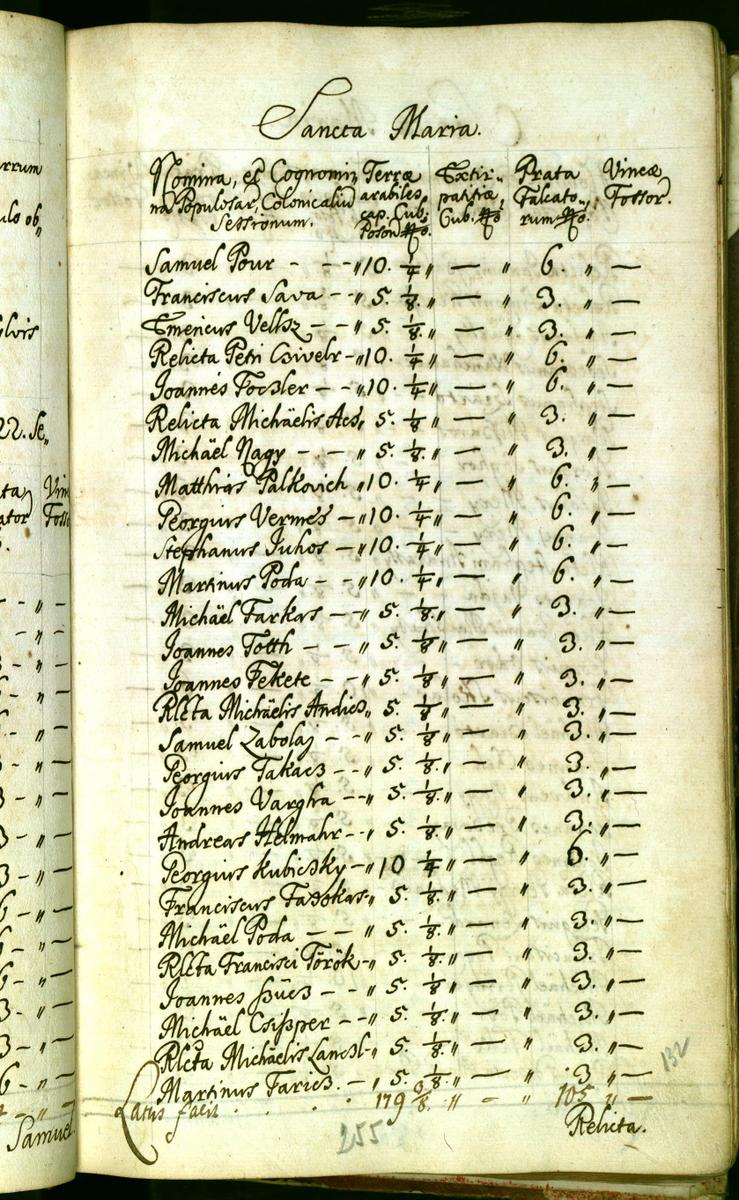 Sancta Maria.
Nomina, et Cognomin, Terræ Extir- Prata Vineæ
na Populosar, Colonicaliũ arabiles, patitiæ, Falcato- Fossor.
Sessionum. cap. Cub. Cub. rum
Poson
Samuel Pour - - - " 10. 1/4 " — " 6. " —
Franciscus Sava - - " 5. 1/8. " — " 3. " —
Emericus Velhz - - " 5. 1/8 — " 3. " —
Relicta Petri Csivelr - " 10. 1/4 " — " 6. " —
Joannes Foczler - - " 10. 1/4 " — " 6. " —
Relicta Michäelis Acs " 5. 1/8 " — " 3. " —
Michäel Nagy - - - " 5. 1/8. " — " 3. " —
Matthias Palkovich " 10. 1/4 " — " 6. " —
Georgius Vermes - " 10. 1/4 " — " 6. " —
Stephanus Juhos - " 10. 1/4 " — " 6. " —
Martinus Poda - - " 10. 1/4 " — " 6. " —
Michäel Farkas - " 5. 1/8. " — " 3. " —
Joannes Totth - - " 5. 1/8 " — " 3. " —
Joannes Fekete - - " 5. 1/8 " — " 3. " —
Rlcta Michäelis Andics " 5. 1/8 " — " 3. " —
Samuel Zabolaj - - " 5. 1/8 " — " 3. " —
Georgius Takacs - - " 5. 1/8. " — " 3. " —
Joannes Vargha - - " 5. 1/8. " — " 3. " —
Andreas Helmahr - - " 5. 1/8. " — " 3. " —
Georgius Kubicsky - " 10 1/4 " — " 6. " —
Franciscus Fazokas - " 5. 1/8. " — " 3. " —
Michäel Poda - - " 5. 1/8. " — " 3. " —
Rlcta Francisci Török - " 5. 1/8. " — " 3. " —
Joannes Szücs - - " 5. 1/8 " — " 3. " —
Michäel Csiszper - - " 5. 1/8. " — " 3. " —
Rlcta Michäelis Lanczl - " 5. 1/8. " — " 3. " —
Martinus Farics. - " 5. 1/8. " — " 3 " —
Latus facit . . . . 179 3/8. " - " 105 " —
Relicta.
255
132
Samuel